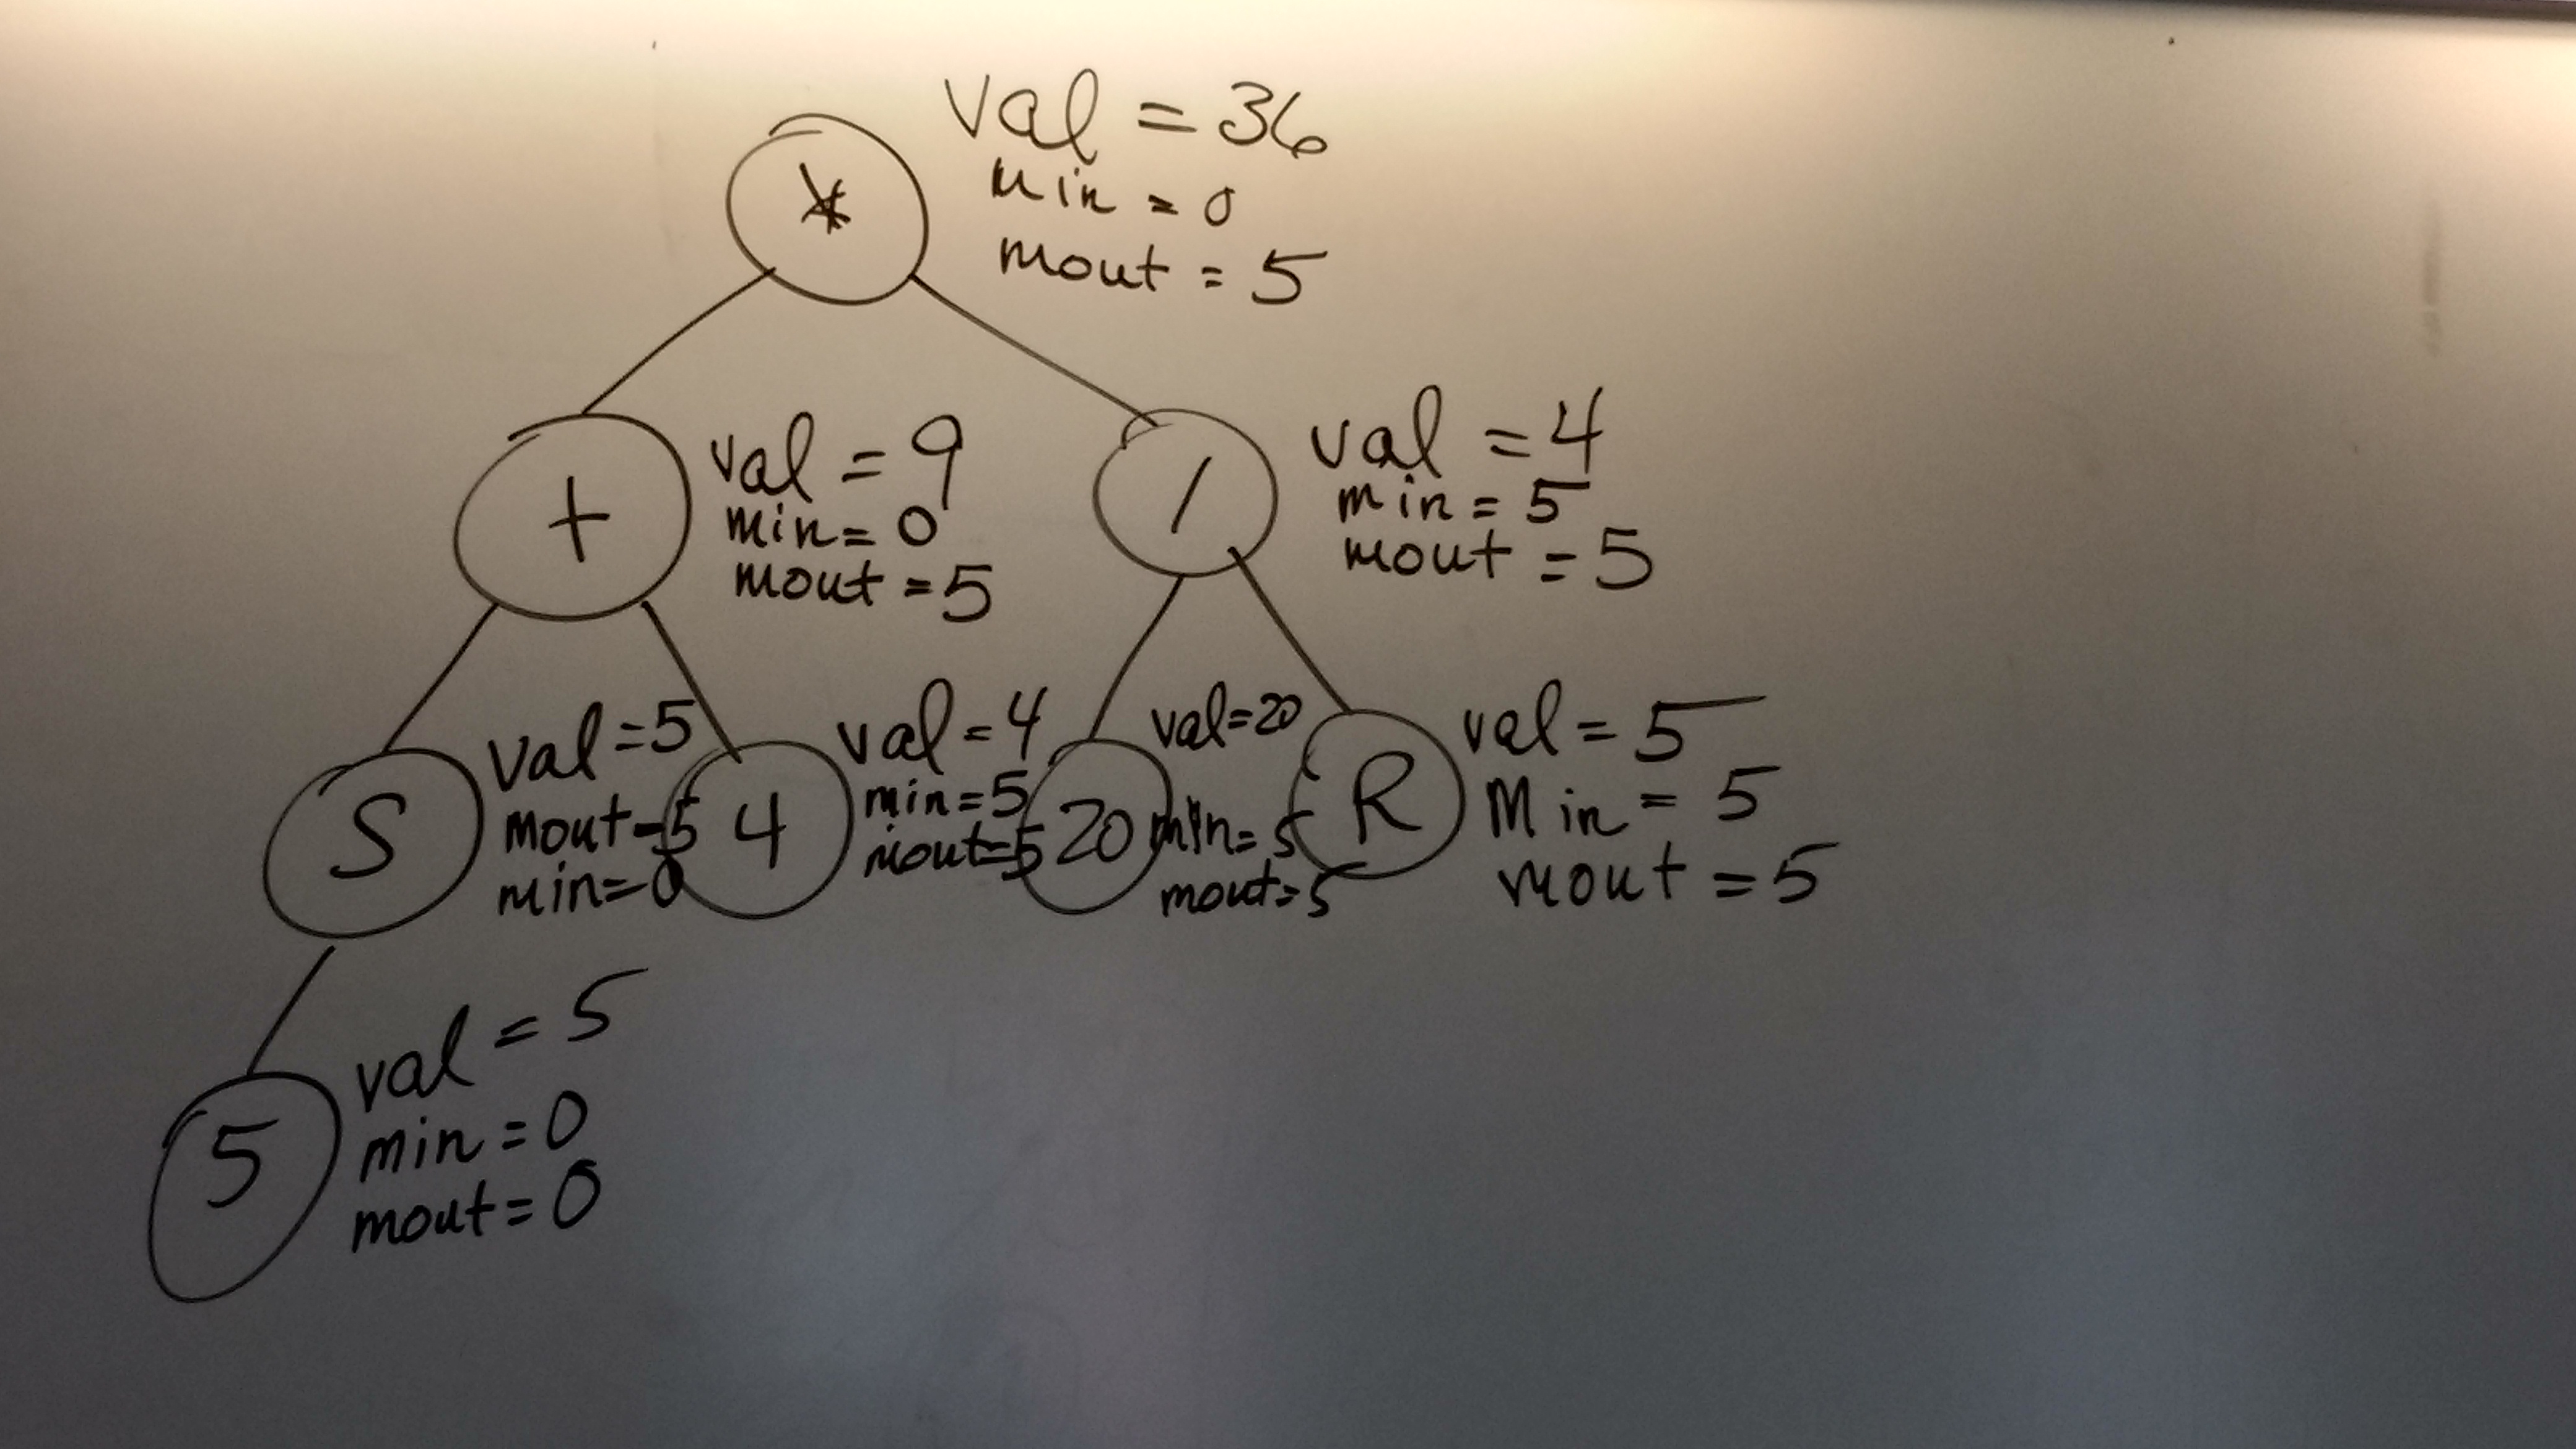 *
val = 36
min = 0
mout = 5
+
val = 9
min = 0
mout = 5
/
val = 4
min = 5
mout = 5
S
val = 5
mout = 5
min = 0
4
val = 4
min = 5
mout = 5
20
val = 20
min = 5
mout = 5
R
val = 5
Min = 5
mout = 5
5
val = 5
min = 0
mout = 0